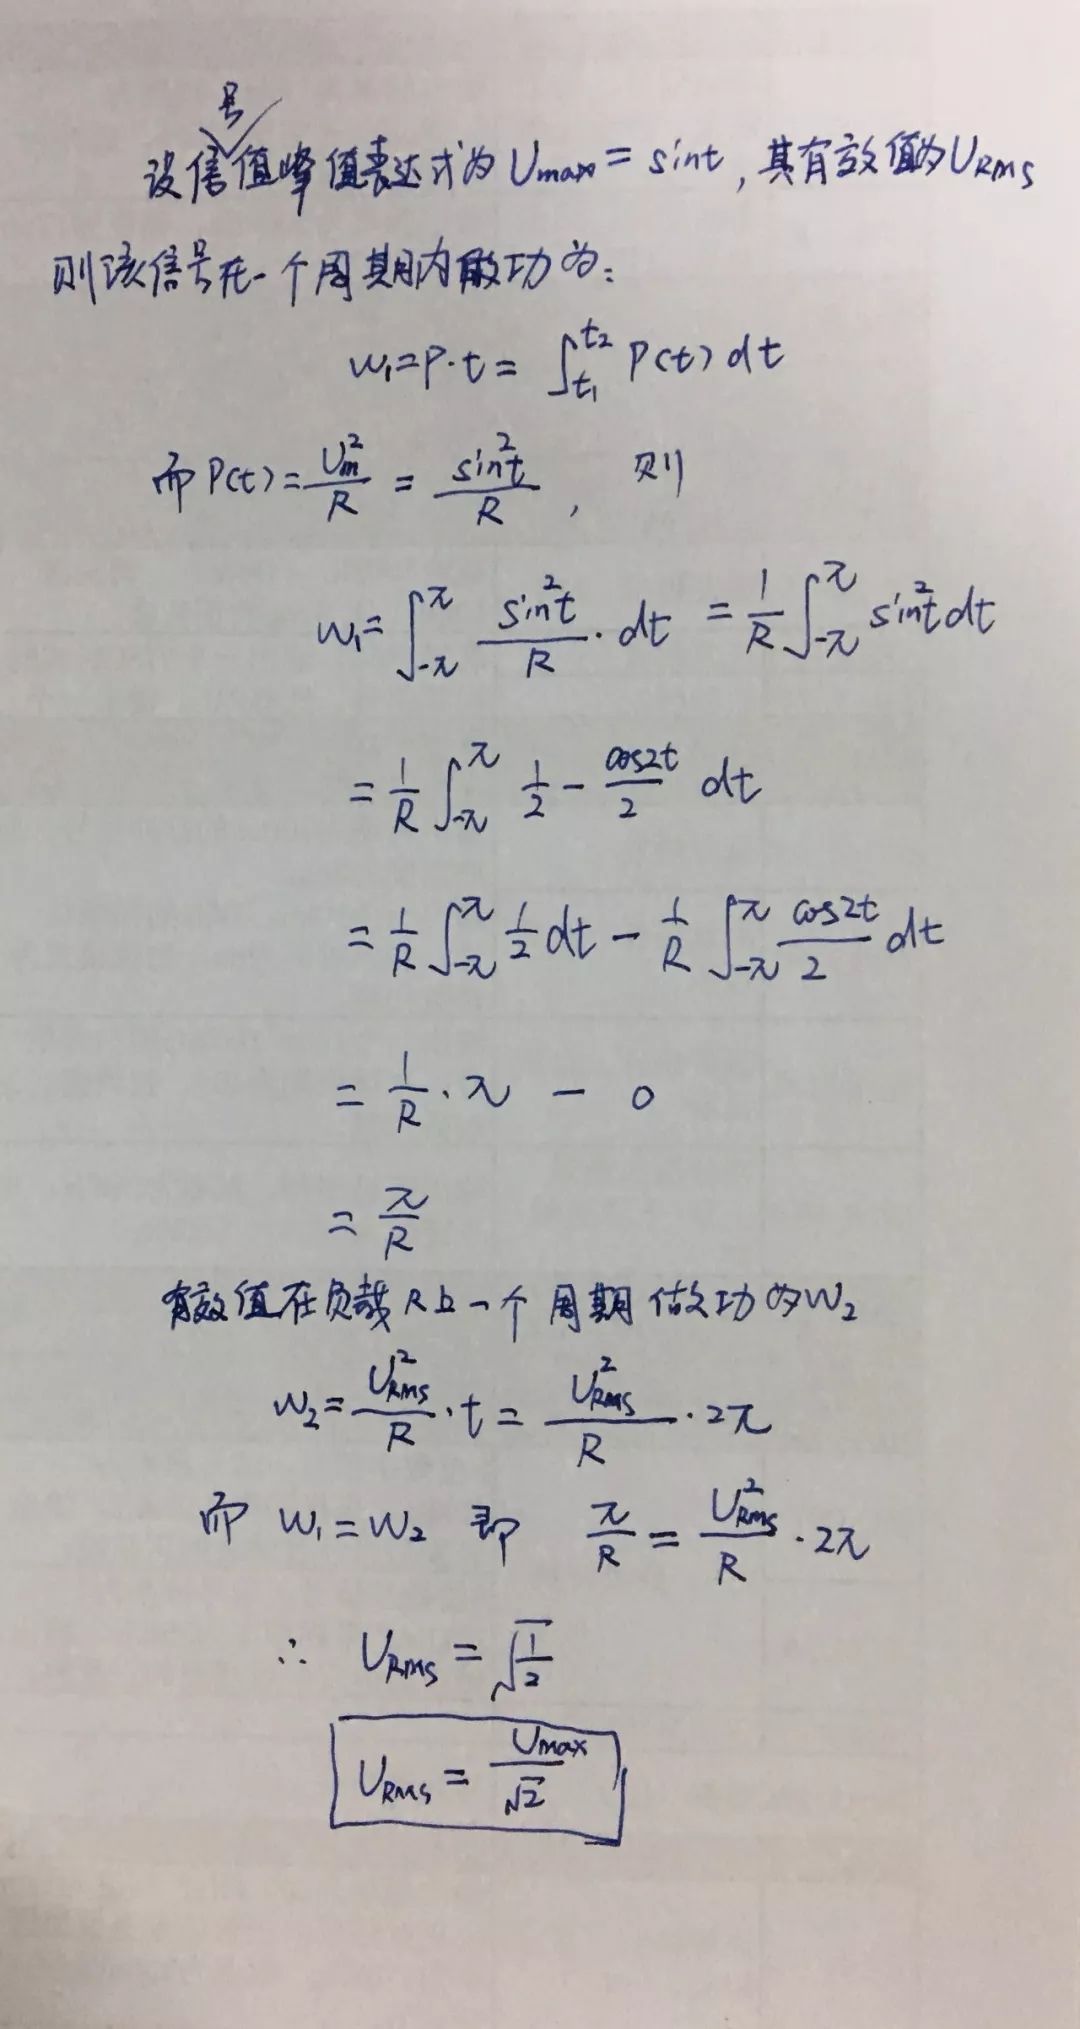 设信号值峰值表达式为 Umax = sint, 其有效值为 URMS
则该信号在一个周期内做功为:
W₁=P·t= ∫_{t₁}^{t₂} P(t) dt
而 P(t) = Um²/R = sin²t/R , 则
W₁= ∫_{-π}^{π} sin²t/R · dt = 1/R ∫_{-π}^{π} sin²t dt
= 1/R ∫_{-π}^{π} 1/2 - cos2t/2 dt
= 1/R ∫_{-π}^{π} 1/2 dt - 1/R ∫_{-π}^{π} cos2t/2 dt
= 1/R · π - 0
= π/R
有效值在负载R上一个周期做功为W₂
W₂= URMS²/R · t = URMS²/R · 2π
而 W₁=W₂ 即 π/R = URMS²/R · 2π
∴ URMS = √(1/2)
URMS = Umax/√2